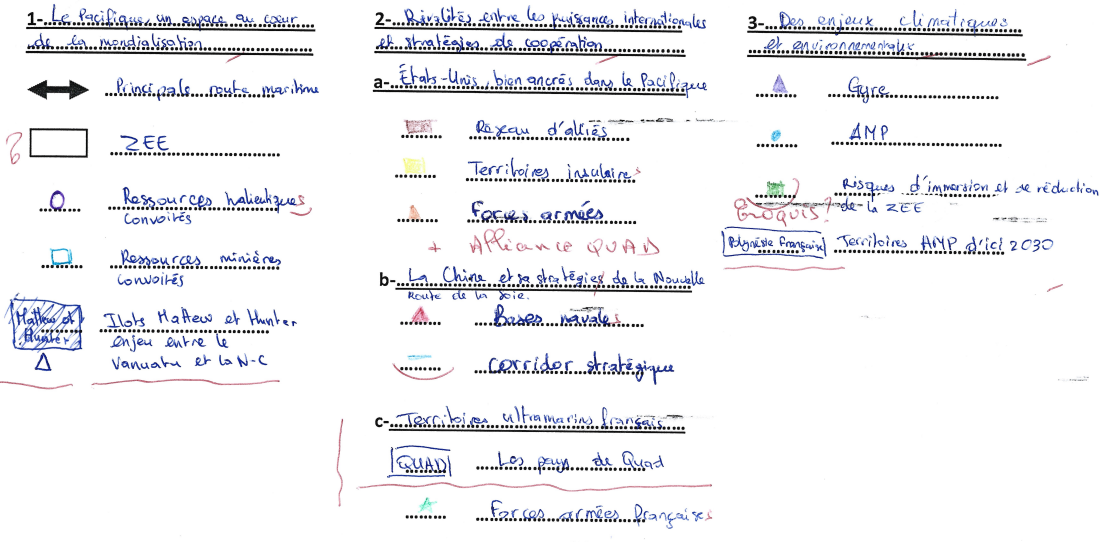 1- Le Pacifique, un espace au cœur
de la mondialisation
Principale route maritime
?
ZEE
Ressources halieutiques
convoités
Ressources minières
convoités
Mattew et
Hunter
Ilots Mattew et Hunter
enjeu entre le
Vanuatu et la N-C
2- Rivalités entre les puissances internationales
et stratégies de coopération
a- États-Unis, bien ancrés dans le Pacifique
Réseau d'alliés
Territoires insulaires
Forces armées
+ Alliance QUAD
b- La Chine et sa stratégies de la Nouvelle
Route de la Soie.
Bases navales
corridor stratégique
c- Territoires ultramarins français
QUAD Les pays de Quad
Forces armées françaises
3- Des enjeux climatiques
et environnementaux
Gyre
AMP
Risques d'immersion et de réduction
de la ZEE
CROQUIS?
Polynésie Française Territoires AMP d'ici 2030